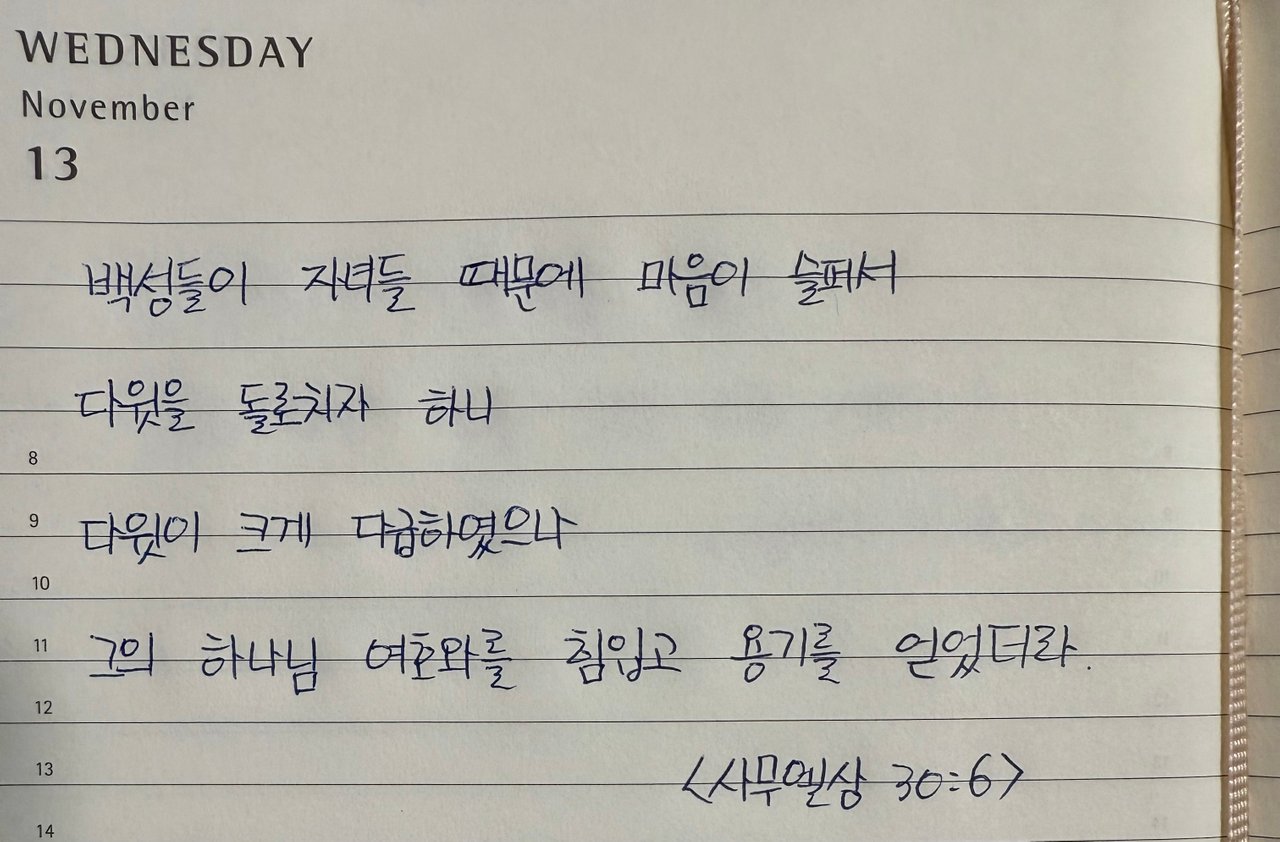 WEDNESDAY
November
13
백성들이 자녀들 때문에 마음이 슬퍼서
다윗을 돌로치자 하니
8
9 다윗이 크게 다급하였으나
10
11 그의 하나님 여호와를 힘입고 용기를 얻었더라.
12
13 <사무엘상 30:6>
14